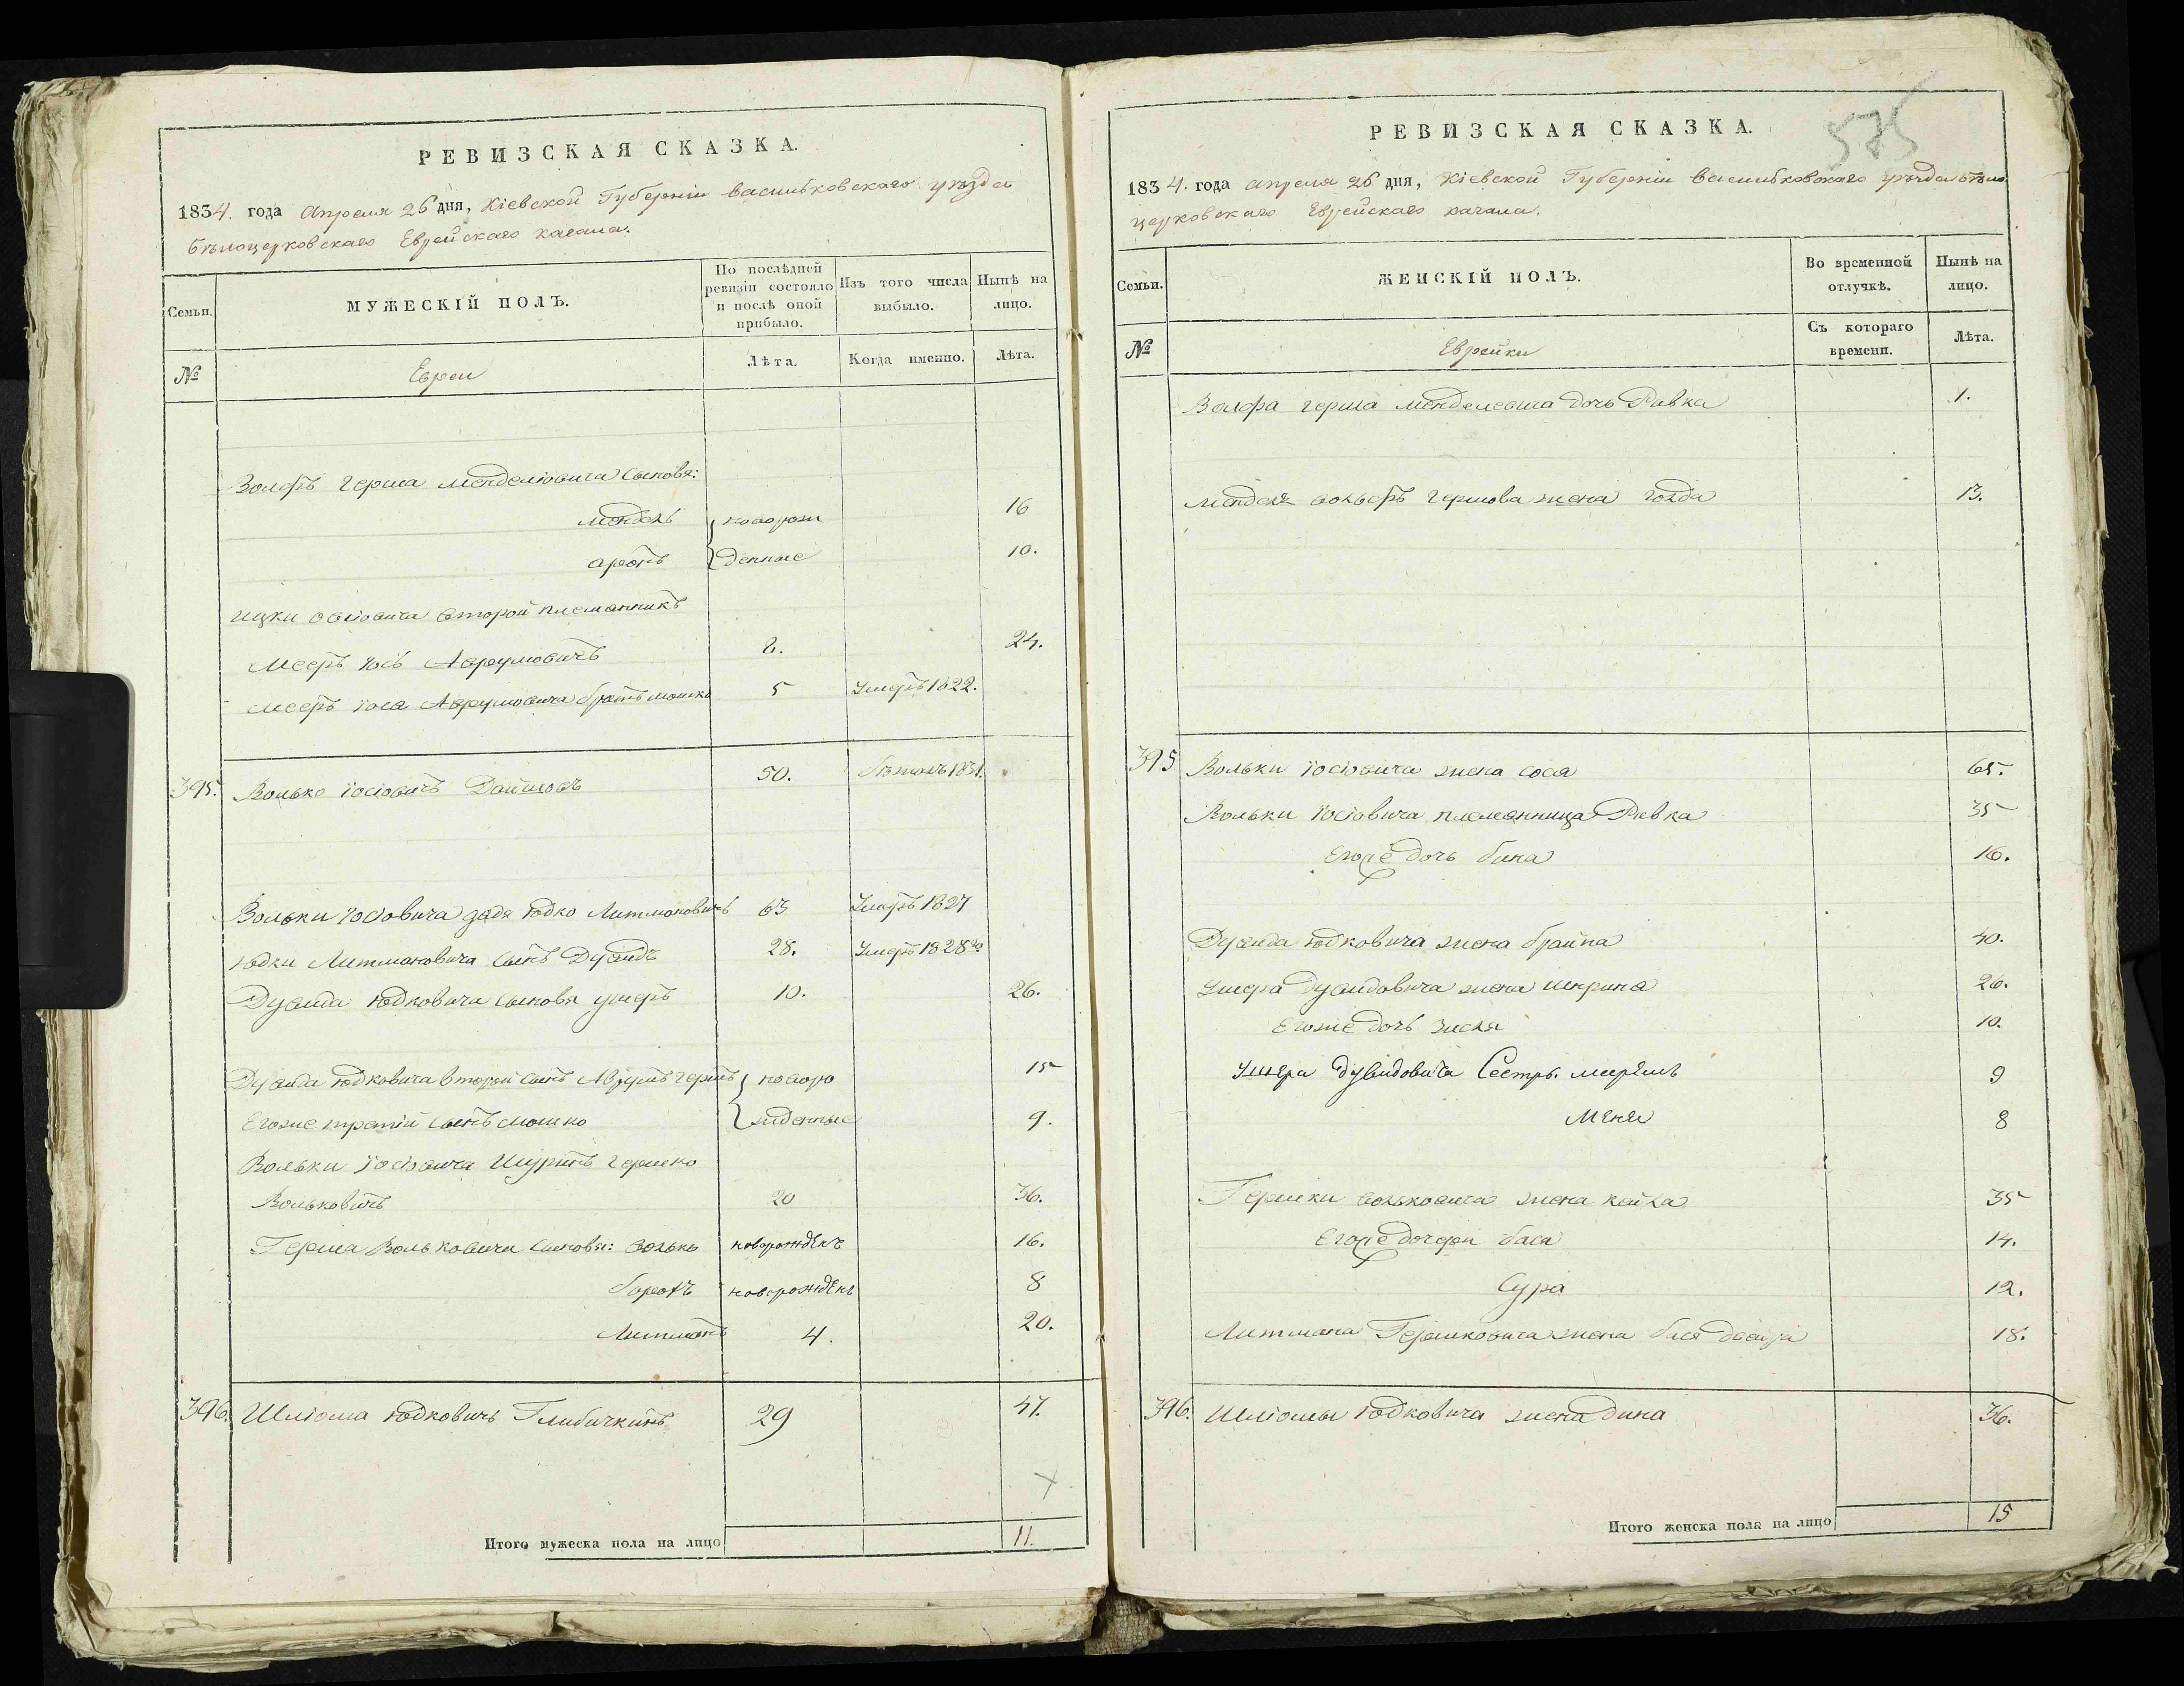 РЕВИЗСКАЯ СКАЗКА.
1834. года Апреля 26 дня, Кіевской Губерніи васильковскаго уѣзда
бѣлоцерковскаго Еврейскаго кагала.
Семьи.
МУЖЕСКІЙ ПОЛЪ.
По послѣдней ревизіи состояло и послѣ оной прибыло.
Изъ того числа выбыло.
Нынѣ на лицо.
№
Евреи
Лѣта.
Когда именно.
Лѣта.
Волфъ герша менделіовича сыновя:
мендель новорож 16
аронъ денные 10.
ицки осіовича второй племянникъ
Мееръ Іось Аврумовичъ 8. 24.
мееръ іося Аврумовича братъ мошко 5 умеръ 1822.
395. Волько іосіовичъ 50. 1831.
Вольки Іосіовича дядя Юдко Литмановичъ 63 Умеръ 1827
юдки Литмановича сынъ Дувидъ 28. Умеръ 1828го
Дувида Юдковича сыновя ушеръ 10. 26.
Дувида Юдковича второй сынъ Аврумъ гершъ новоро 15
Егоже третій сынъ мошко жденные 9.
Вольки іосіовича Шуринъ гершко
Вольковичъ 20 36.
Герша Вольковича сыновя: волько новорожденъ 16.
борохъ новорожденъ 8
Литманъ 4. 20.
396. Шліома юдковичъ Глибичкинъ 29 47.
Итого мужеска пола на лицо 11.
575
РЕВИЗСКАЯ СКАЗКА.
1834. года апреля 26 дня, Кіевской Губерніи васильковскаго уѣзда бѣло
церковскаго Еврейскаго кагала.
Семьи.
ЖЕНСКІЙ ПОЛЪ.
Во временной отлучкѣ.
Нынѣ на лицо.
№
Еврейки
Съ котораго времени.
Лѣта.
Волфа герша менделевича дочь Ривка 1.
менделя вольфъ гершова жена голда 13.
395 Вольки іосіовича жена сося 65.
Вольки Іосіовича племянница Ривка 35
Егоже дочь бина 16.
Дувида юдковича жена брайна 40.
Ушера Дувидовича жена шприна 26.
Егоже дочь зисля 10.
Ушера Дувидовича Сестры. мирямъ 9
Меня 8
Гершки вольковича жена кейла 35
Егоже дочери бася 14.
Сура 12.
Литмана Гершковича жена бася двойра 18.
396. Шліомы юдковича жена дина 36.
Итого женска пола на лицо 15